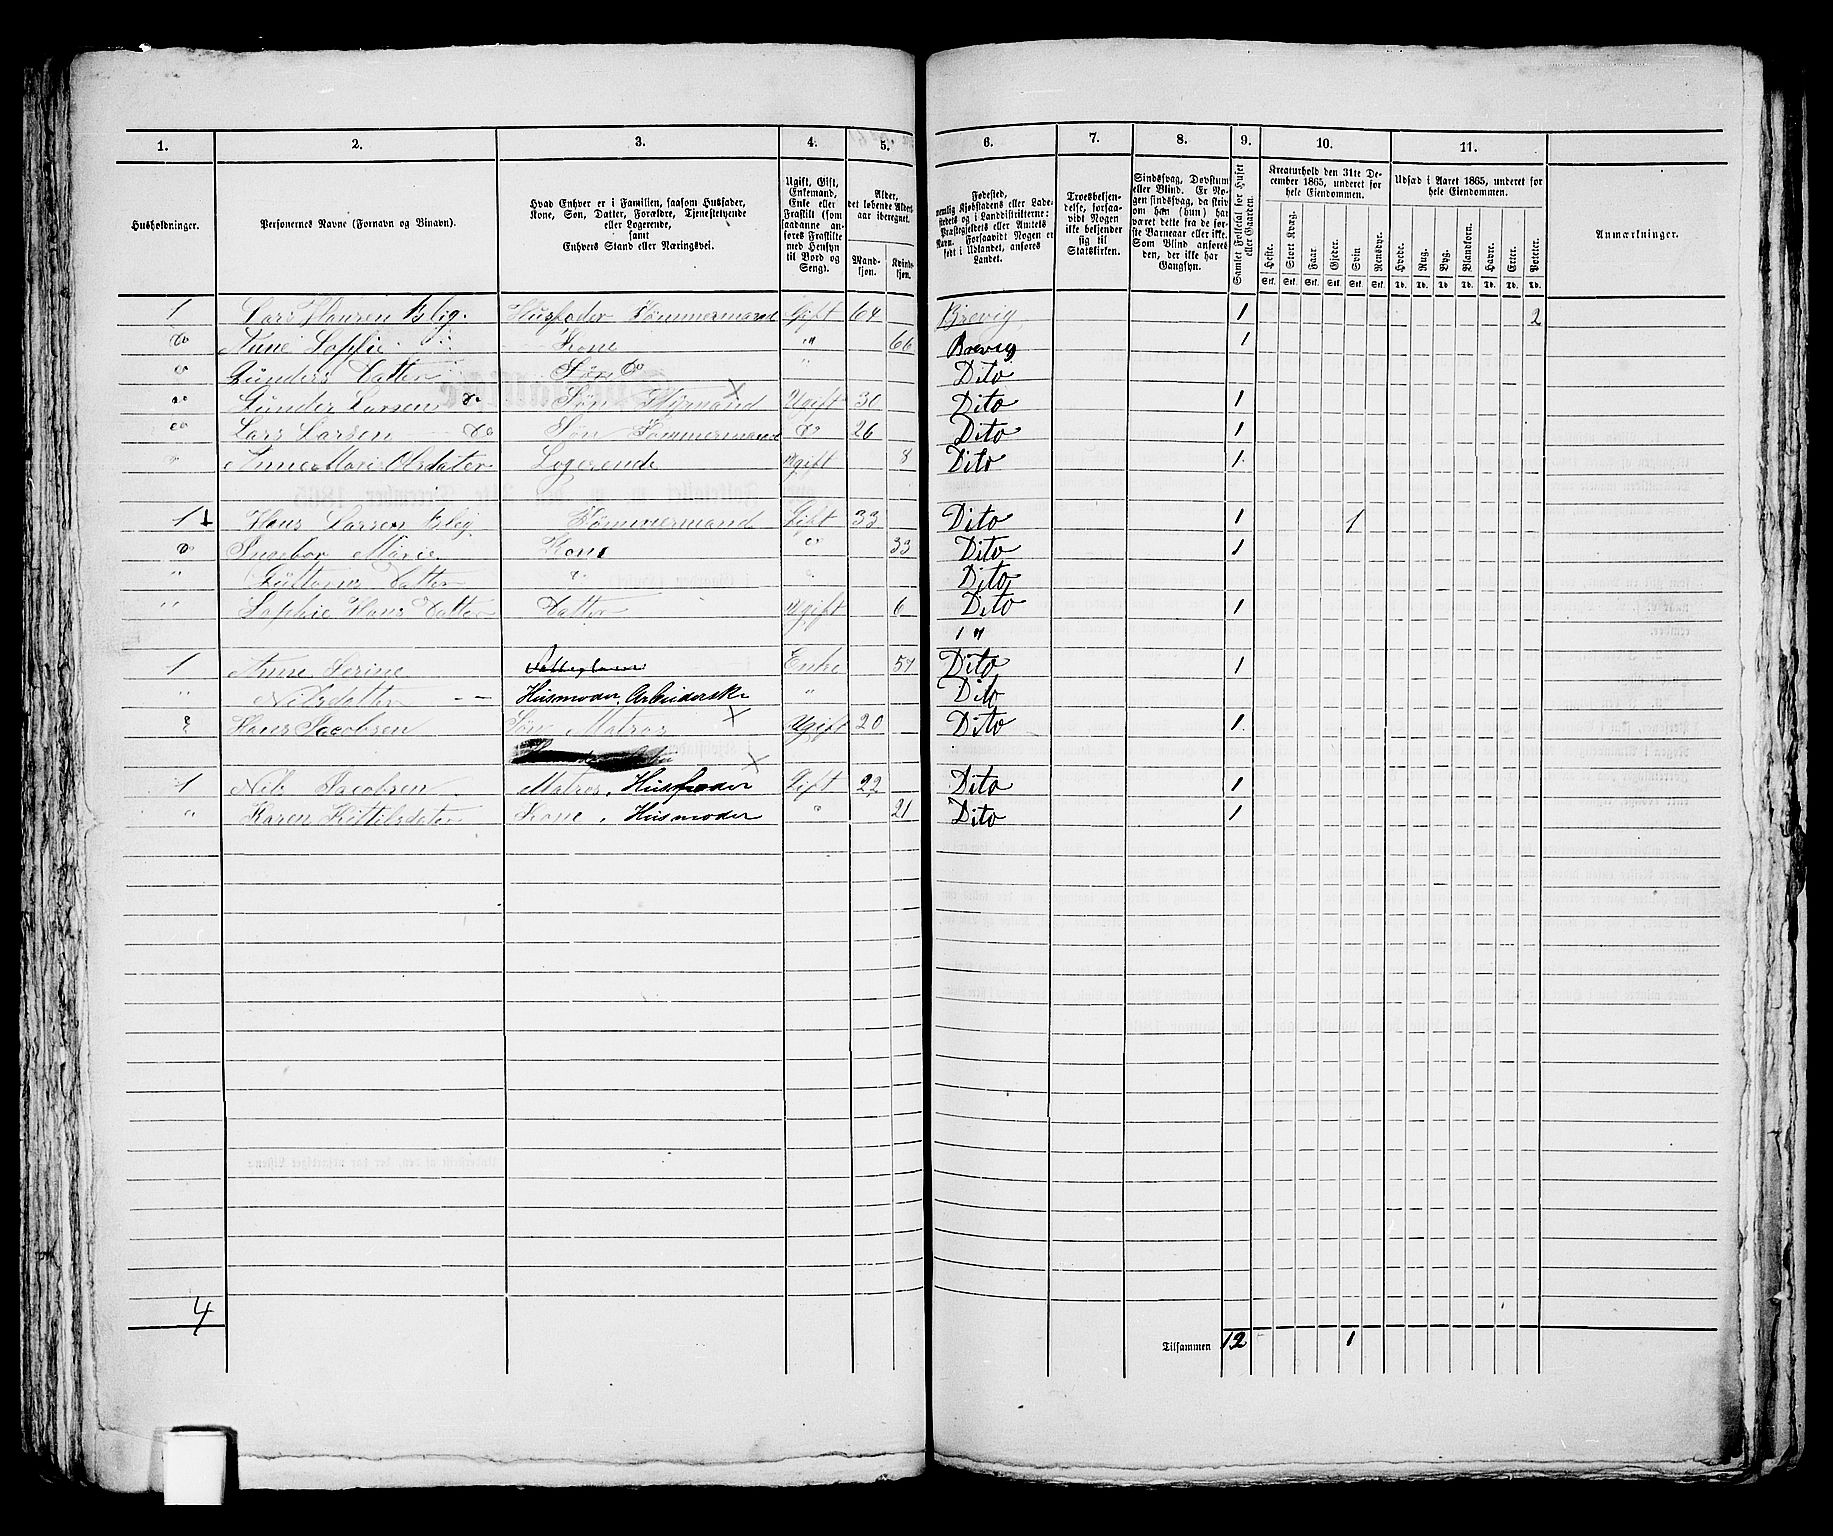 1. 2. 3. 4. 5. 6. 7. 8. 9. 10. 11.
Husholdninger.
Personernes Navne (Fornavn og Binavn).
Hvad Enhver er i Familien, saasom Husfader, Kone, Søn, Datter, Forældre, Tjenestetyende eller Logerende, samt Enhvers Stand eller Næringsvei.
Ugift, Gift, Enkemand, Enke eller Fraskilt (som saadanne anføres Fraskilte med Hensyn til Bord og Seng).
Alder, det løbende Alders-aar iberegnet.
Mand-kjøn. Kvinde-kjøn.
Fødested, nemlig Kjøbstadens eller Ladestedets og i Landdistrikterne: Præstegjeldets eller Amtets Navn. Forsaavidt Nogen er født i Udlandet, anføres Landet.
Troesbekjendelse, forsaavidt Nogen ikke bekjender sig til Statskirken.
Sindssvag, Døvstum eller Blind. Er Nogen sindssvag, da skriv om han (hun) har været dette fra de første Barneaar eller ikke. Som Blind anføres den, der ikke har Gangsyn.
Samlet Folketal for Huset eller Gaarden.
Kreaturhold den 31te December 1865, underet for hele Eiendommen.
Heste. Stort Kvæg. Faar. Gjeder. Svin. Rensdyr.
Stk. Stk. Stk. Stk. Stk. Stk.
Udsæd i Aaret 1865, underet for hele Eiendommen.
Hvede. Rug. Byg. Blandkorn. Havre. Erter. Poteter.
Td. Td. Td. Td. Td. Td. Td.
Anmærkninger.
1 Lars Hansen Husfader Tømmermand Gift 64 Brevig 1 2
do Anne Sophie Kone " 66 Brevig 1
do Gunders Datter Do " Dito
do Gunder Larsen do Søn Styrmand Ugift 30 Dito 1
do Lars Larsen do Søn Tømmermand do 26 Dito 1
Anne Marie Olsdater Logerende Ugift 8 Dito 1
1 Hans Larsen Tømmermand Gift 33 Dito 1 1
do Ingebor Marie Kone do 33 Dito 1
" Datter " " Dito
" Sophie Hans Datter Datter Ugift 6 Dito 1
" "
1 Anne Serine Enke 57 Dito 1
" Nilsdatter Husmoder, Arbeiderske " Dito
Hans Jacobsen Søn Matros Ugift 20 Dito 1
1 Nils Jacobsen Matros, Husfader Gift 22 Dito 1
" Karen Kittilsdater Kone, Husmoder " 21 Dito 1
4 Tilsammen 12 1